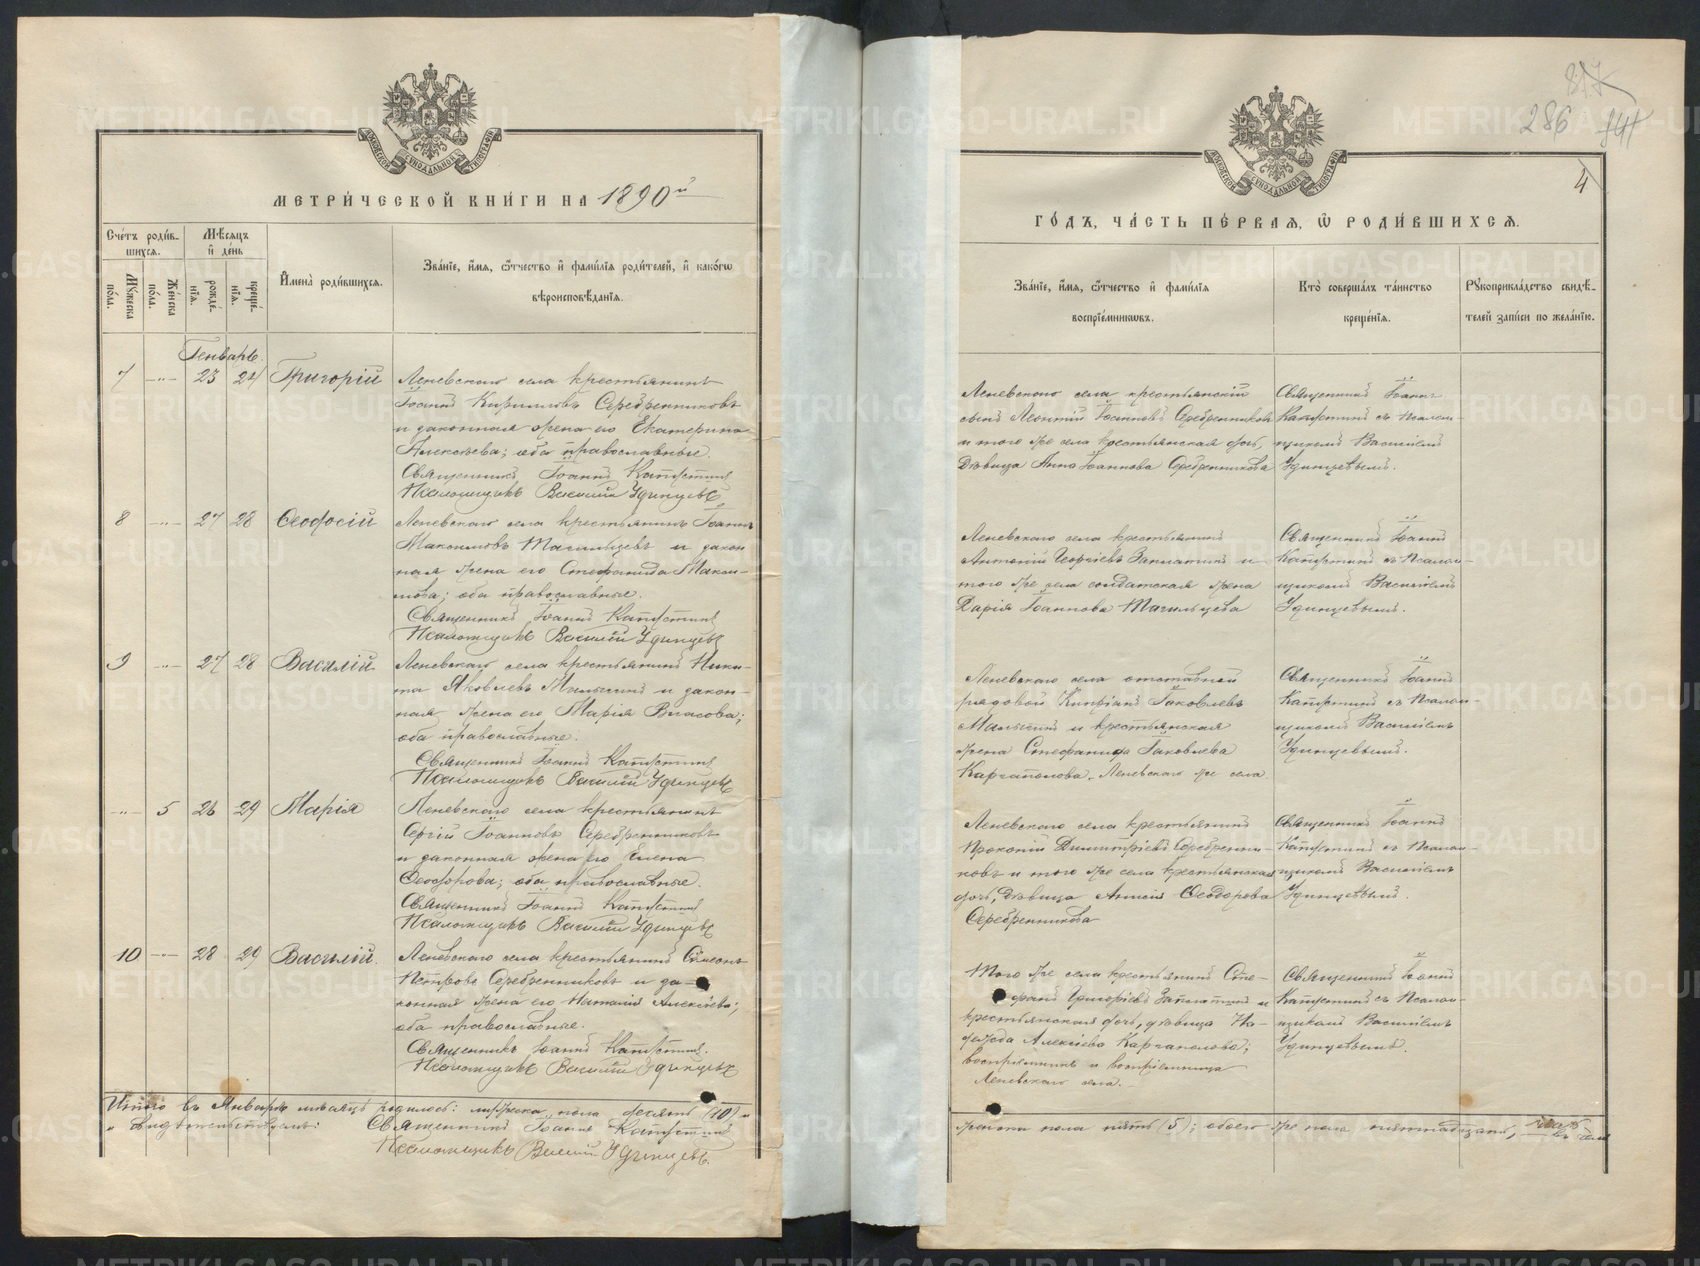 МОСКОВСКОЙ СУНОДАЛЬНОЙ ТИПОГРАФІИ
МЕТРИ́ЧЕСКОЙ КНИ́ГИ НА 1890й
Сче́тъ роди́в-
шихсѧ.
Мѣ́сѧцъ
и҆ де́нь
Мꙋ́жеска
по́ла.
Же́нска
по́ла.
рожде́-
нїѧ.
креще́-
нїѧ.
И҆мена̀ роди́вшихсѧ.
Зва́нїе, и҆́мѧ, ѻ҆́тчество и҆ фами́лїѧ роди́телей, и҆ како́гѡ
вѣроисповѣ́данїѧ.
Генварь.
7 -"- 23 24 Григорій
Леневскаго села крестьянинъ
Іоаннъ Кирилловъ Серебренниковъ
и законная жена его Екатерина
Алексѣева; оба православные.
Священникъ Іоаннъ Капустинъ
Псаломщикъ Василій Удинцевъ
8 -"- 27 28 Ѳеодосій
Леневскаго села крестьянинъ Іоаннъ
Максимовъ Тагильцевъ и закон-
ная жена его Стефанида Макси-
мова; оба православные.
Священникъ Іоаннъ Капустинъ
Псаломщикъ Василій Удинцевъ
9 -"- 27 28 Василій
Леневскаго села крестьянинъ Ники-
та Яковлевъ Малыгинъ и закон-
ная жена его Марія Власова;
оба православные.
Священникъ Іоаннъ Капустинъ
Псаломщикъ Василій Удинцевъ
-"- 5 26 29 Марія
Леневскаго села крестьянинъ
Сергій Іоанновъ Серебренниковъ
и законная жена его Елена
Ѳеодорова; оба православные.
Священникъ Іоаннъ Капустинъ
Псаломщикъ Василій Удинцевъ
10 -"- 28 29 Василій.
Леневскаго села крестьянинъ Симеонъ
Петровъ Серебренниковъ и за-
конная жена его Наталія Алексѣева;
оба православные.
Священникъ Іоаннъ Капустинъ.
Псаломщикъ Василій Удинцевъ
Итого въ Январѣ мѣсяцѣ родилось: мужеска пола десять (10) и
Священникъ Іоаннъ Капустинъ
Псаломщикъ Василій Удинцевъ.
817
286
4
МОСКОВСКОЙ СУНОДАЛЬНОЙ ТИПОГРАФІИ
ГО́ДЪ, ЧА́СТЬ ПЕ́РВАѦ, Ѡ҆ РОДИ́ВШИХСѦ.
Зва́нїе, и҆́мѧ, ѻ҆́тчество и҆ фами́лїѧ
воспрїе́мникѡвъ.
Кто̀ соверша́лъ та́инство
креще́нїѧ.
Рꙋкоприкла́дство свидѣ́-
телей за́писи по жела́нїю.
Леневскаго села крестьянскій
сынъ Леонтій Іоанновъ Серебренниковъ
и того же села крестьянская дочь
Дѣвица Анна Іоаннова Серебренникова
Священникъ Іоаннъ
Капустинъ съ Псалом-
щикомъ Василіемъ
Удинцевымъ.
Леневскаго села крестьянинъ
Антоній Георгіевъ Заплатинъ и
того же села солдатская жена
Дарія Іоаннова Тагильцева
Священникъ Іоаннъ
Капустинъ съ Псалом-
щикомъ Василіемъ
Удинцевымъ.
Леневскаго села отставной
рядовой Кипріанъ Іаковлевъ
Малыгинъ и крестьянская
жена Стефанида Іаковлева
Каргаполова, Леневскаго же села
Священникъ Іоаннъ
Капустинъ съ Псалом-
щикомъ Василіемъ
Удинцевымъ.
Леневскаго села крестьянинъ
Прокопій Димитріевъ Серебренни-
ковъ и того же села крестьянская
дочь, Дѣвица Анисія Ѳеодорова
Серебренникова
Священникъ Іоаннъ
Капустинъ съ Псалом-
щикомъ Василіемъ
Удинцевымъ.
Того же села крестьянинъ Сте-
фанъ Григоріевъ Заплатинъ и
крестьянская дочь, дѣвица На-
дежда Алексіева Каргаполова;
воспріемникъ и воспріемница
Леневскаго села.
Священникъ Іоаннъ
Капустинъ съ Псалом-
щикомъ Василіемъ
Удинцевымъ.
женска пола пять (5); обоего же пола пятнадцать,
METRIKI.GASO-URAL.RU